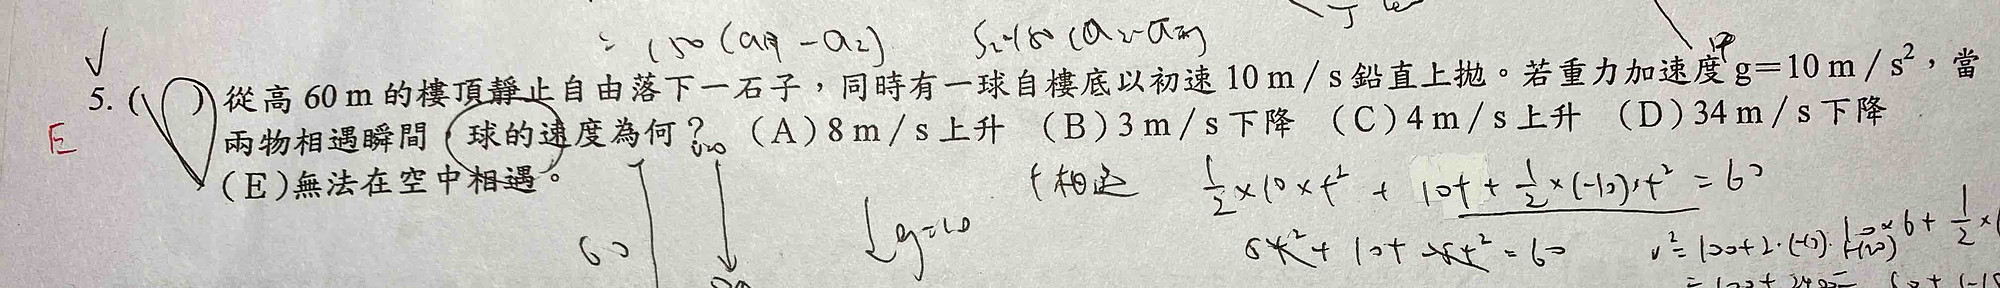 = 150 (a甲 - a2)
5. ( ) 從高 60 m 的樓頂靜止自由落下一石子，同時有一球自樓底以初速 10 m / s 鉛直上拋。若重力加速度 g=10 m / s²，當
E 兩物相遇瞬間，球的速度為何？ (A) 8 m / s 上升 (B) 3 m / s 下降 (C) 4 m / s 上升 (D) 34 m / s 下降
(E)無法在空中相遇。
t 相遇 1/2 ×10 × t² + 10t + 1/2 ×(-10)×t² = 60
60 ↓g=10 5t² + 10t - 5t² = 60